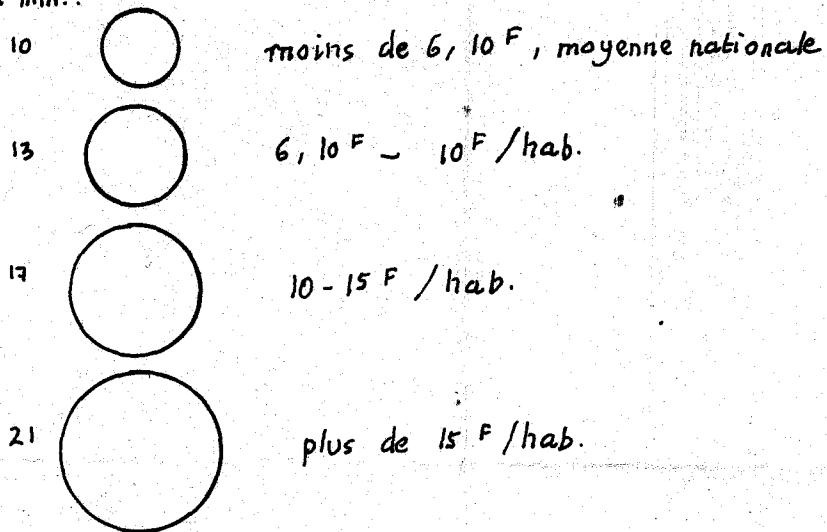 10 moins de 6,10 F, moyenne nationale
13 6,10 F - 10 F /hab.
17 10-15 F /hab.
21 plus de 15 F /hab.